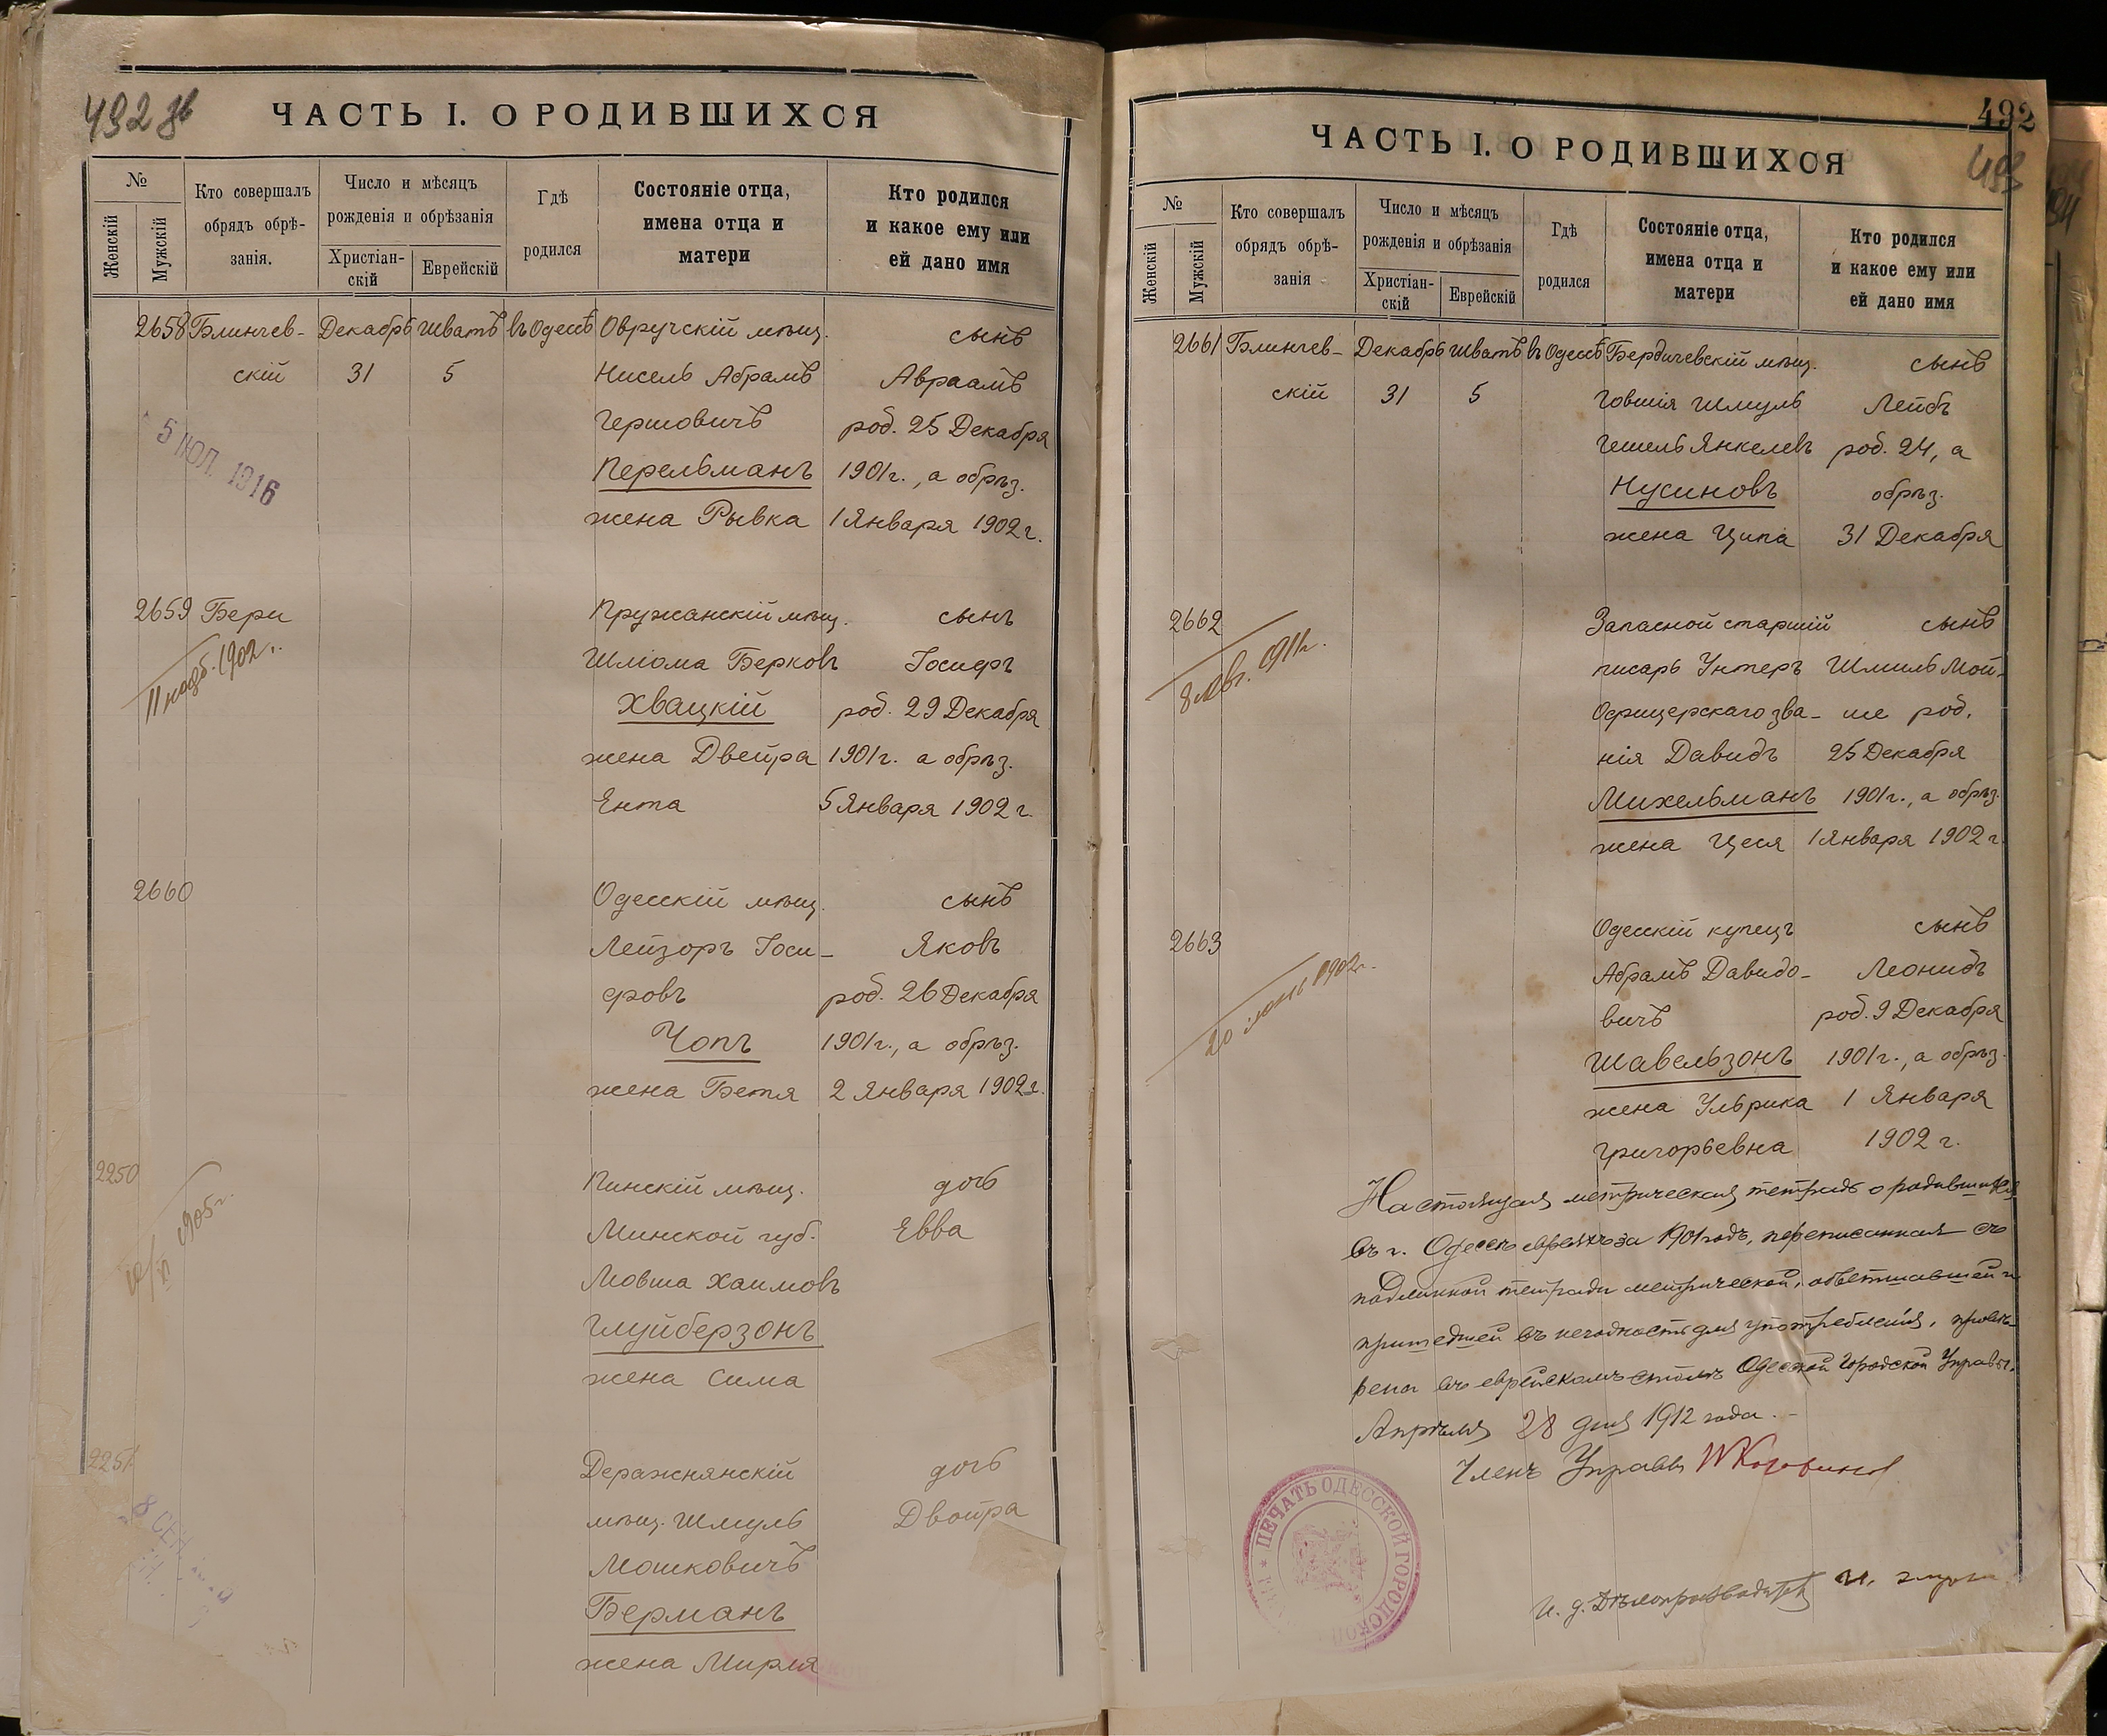 492 зв
ЧАСТЬ I. О РОДИВШИХСЯ
№
Женскій
Мужскій
Кто совершалъ
обрядъ обрѣ-
занія.
Число и мѣсяцъ
рожденія и обрѣзанія
Христіан-
скій
Еврейскій
Гдѣ
родился
Состояніе отца,
имена отца и
матери
Кто родился
и какое ему или
ей дано имя
2658 Блинчев- Декабрь Шватъ въ Одессѣ Овручскій мѣщ. сынъ
скій 31 5 Нисель Абрамъ Авраамъ
Гершовичъ род. 25 Декабря
5 ІЮЛ. 1916
Перельманъ 1901 г., а обрѣз.
жена Рывка 1 Января 1902 г.
2659 Бери Пружанскій мѣщ. сынъ
Шліома Берковъ Іосифъ
11 нояб. 1902 г.
Хвацкій род. 29 Декабря
жена Двейра 1901 г. а обрѣз.
Ента 5 Января 1902 г.
2660 Одесскій мѣщ. сынъ
Лейзоръ Іоси- Яковъ
фовъ род. 26 Декабря
Чопъ 1901 г., а обрѣз.
жена Бетя 2 Января 1902 г.
2250 Пинскій мѣщ. дочь
Минской губ. Евва
1905 г.
Мовша Хаимовъ
Глуйберзонъ
жена Сима
2251 Деражнянскій дочь
мѣщ. Шмуль Двойра
8 СЕН
Мошковичъ
Берманъ
жена Мирля
492
493
ЧАСТЬ I. О РОДИВШИХСЯ
№
Женскій
Мужскій
Кто совершалъ
обрядъ обрѣ-
занія
Число и мѣсяцъ
рожденія и обрѣзанія
Христіан-
скій
Еврейскій
Гдѣ
родился
Состояніе отца,
имена отца и
матери
Кто родился
и какое ему или
ей дано имя
2661 Блинчев- Декабрь Шватъ въ Одессѣ Бердичевскій мѣщ. сынъ
скій 31 5 Говшія Шмуль Лейбъ
Гешель Янкелевъ род. 24, а
Нусиновъ обрѣз.
жена Ципа 31 Декабря
2662 Запасной старшій сынъ
писарь Унтеръ Шмиль Мой-
8 Авг. 1911 г.
Офицерскаго зва- ше род.
нія Давидъ 25 Декабря
Михельманъ 1901 г., а обрѣз.
жена Цеся 1 Января 1902 г.
2663 Одесскій купецъ сынъ
Абрамъ Давидо- Леонидъ
20 1902 г.
вичъ род. 9 Декабря
Шавельзонъ 1901 г., а обрѣз.
жена Ульрика 1 Января
Григорьевна 1902 г.
Настоящая метрическая тетрадь о родившихся
въ г. Одессѣ евреяхъ за 1901 годъ, переписанная съ
подлинной тетради метрической, обветшавшей и
пришедшей въ негодность для употребленія, провѣ-
рена въ еврейскомъ столѣ Одесской Городской Управы.
Апрѣля 28 дня 1912 года.
Членъ Управы
ПЕЧАТЬ ОДЕССКОЙ ГОРОДСКОЙ
И. д. Дѣлопроизводителя